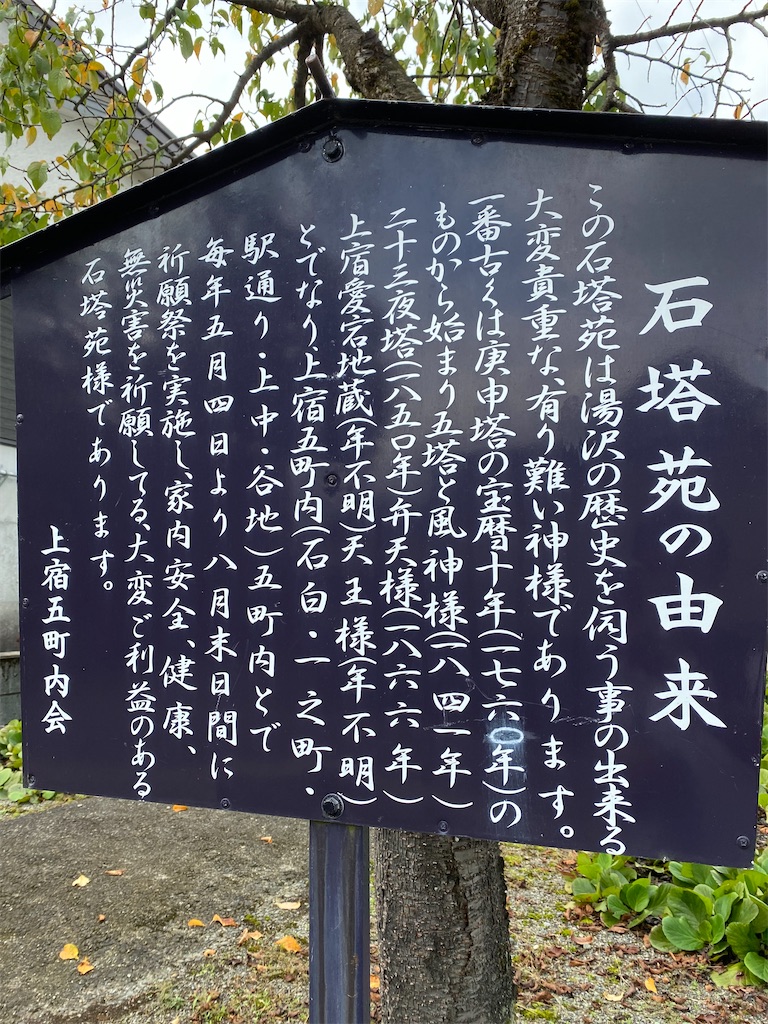 石塔苑の由来
この石塔苑は湯沢の歴史を伺う事の出来る
大変貴重な、有り難い神様であります。
一番古くは庚申塔の宝暦十年(一七六〇年)の
ものから始まり五塔と風神様(一八四一年)
二十三夜塔(一八五〇年)弁天様(一八六六年)
上宿愛宕地蔵(年不明)天王様(年不明)
とでなり、上宿五町内(石白・一之町・
駅通り・上中・谷地)五町内とで
毎年五月四日より八月末日間に
祈願祭を実施し、家内安全、健康、
無災害を祈願してる、大変ご利益のある
石塔苑様であります。
上宿五町内会